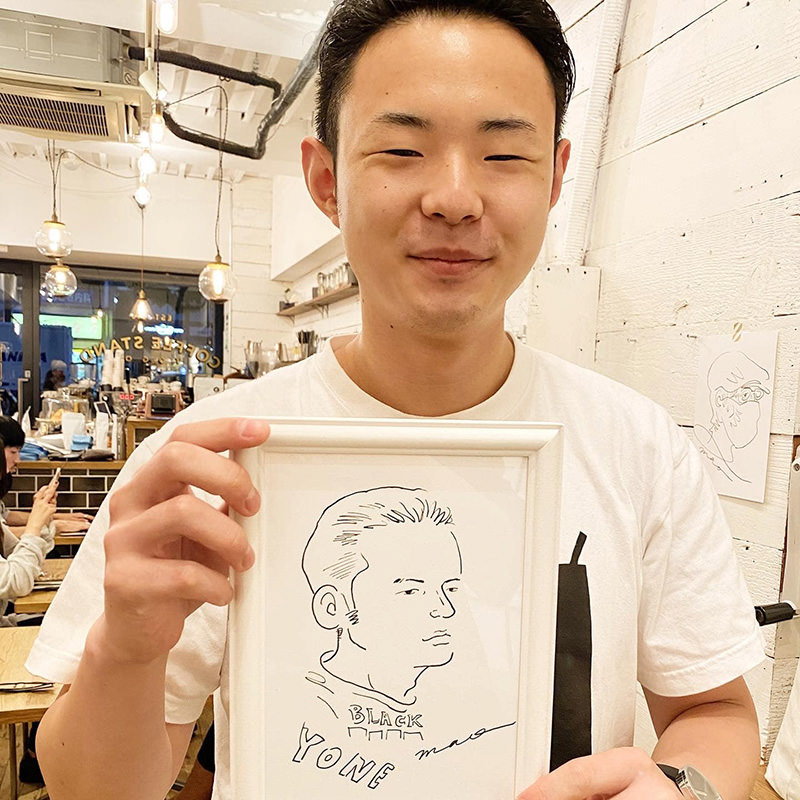 COFFEE STAND
BLACK
YONE
mao